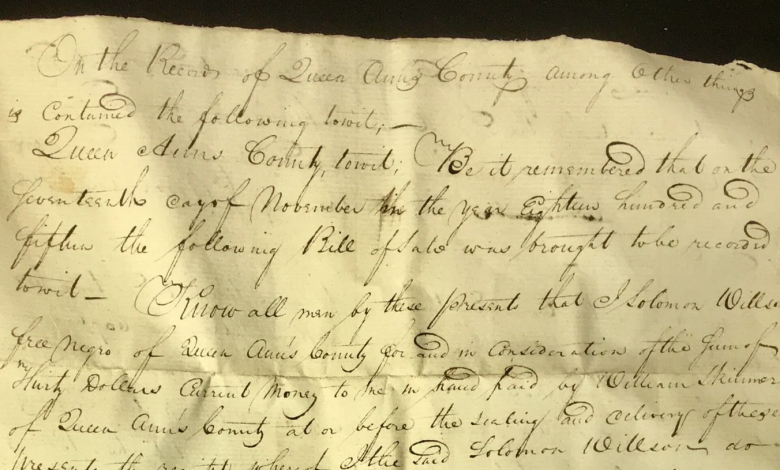 On the Records of Queen Ann's County among other things
is contained the following towit; —
Queen Anns County, towit; Be it remembered that on the
seventeenth day of November in the year Eighteen hundred and
fifteen the following Bill of Sale was brought to be recorded
towit — Know all men by these Presents that I Solomon Willson
free negro of Queen Ann's County for and in consideration of the Sum of
Thirty Dollars Current Money to me in hand paid by William Skinner
of Queen Ann's County at or before the sealing and delivery of these
presents the receipt whereof I the said Solomon Willson do